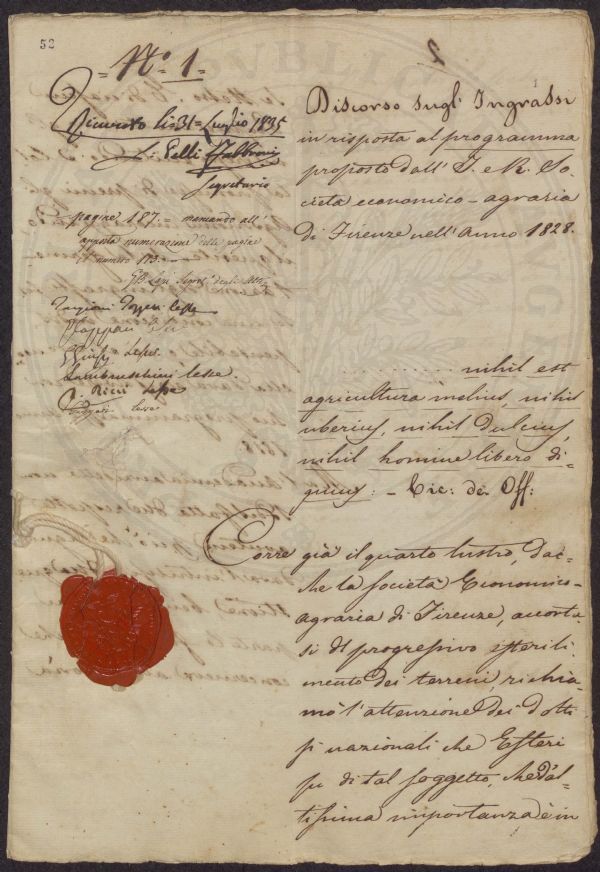 52
= N.º 1. =
2
1
Ricevuto li 31 = Luglio 1835
L. Pelli Fabbroni
Segretario
pagine 187. = mancando all'
apposta numerazione delle pagine
il numero 113.
Targioni Tozzetti lesse
Lambruschini lesse
Ricci lesse
lesse
Discorso sugl' Ingrassi
in risposta al programma
proposto dall' I. e R. So-
cietà economico-agraria
di Firenze nell' Anno 1828.
. . . . . . . . . . nihil est
agricultura melius, nihil
uberius, nihil dulcius,
nihil homine libero di-
gnius: - Cic: de Off:
Corre già il quarto lustro, dac-
chè la Società Economico-
agraria di Firenze, accorta-
si del progressivo isterili-
mento dei terreni, richia-
mò l'attenzione dei dotti
sì nazionali che Esteri
su di tal soggetto, che d'al-
tissima importanza è in